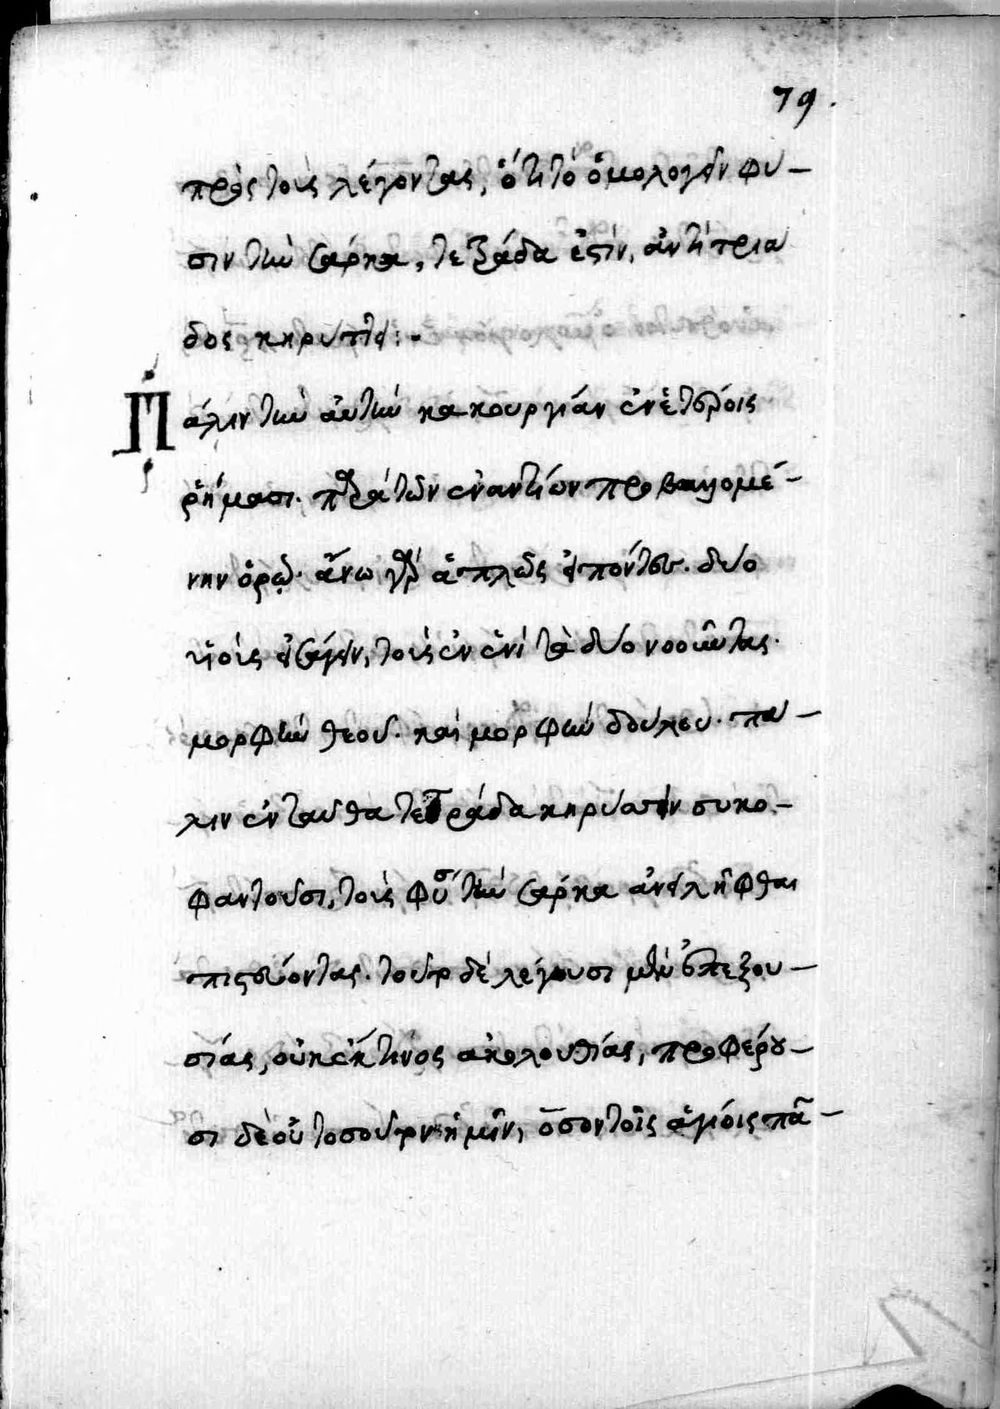 79.
πρὸς τοὺς λέγοντας, ὅτι τὸ ὁμολογεῖν φύ-
σιν τὴν σάρκα, τετράδα ἐστὶν, ἀντὶ τριά
δος κηρύττει:-
Πάλιν τὴν αὐτὴν κακουργίαν ἐν ἑτέροις
ῥήμασι. παρὰ τῶν ἐναντίων προβαλλομέ-
νην ὁρῶ. ἄνω γὰρ ἁπλῶς εἰπόντες. δύο
υἱοὺς εἰσάγειν, τοὺς ἐν ἑνὶ τὰ δύο νοοῦντας.
μορφὴν θεοῦ. καὶ μορφὴν δούλου. πά-
λιν ἐνταῦθα τετράδα κηρύσσειν συκο-
φαντοῦσι, τοὺς φύσιν τὴν σάρκα ἀνειλῆφθαι
πιστεύοντας. τοῦτο δὲ λέγουσι μὲν ὑπεξου-
σίας, οὐκ ἔκ τινος ἀκολουθίας, προφέρου-
σι δὲ οὐ τοσοῦτον ἡμῖν, ὅσον τοῖς ἁγίοις πᾶ-